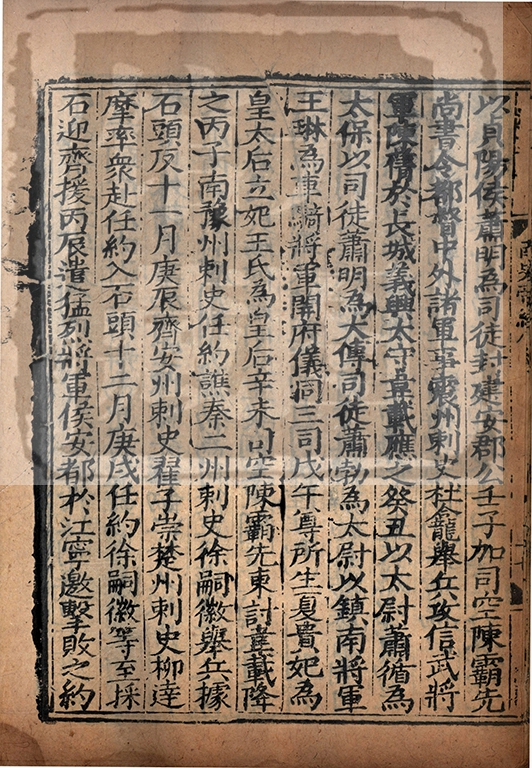 以貞陽侯蕭明為司徒封建安郡公壬子加司空陳霸先
尚書令都督中外諸軍事震州刺史杜龕舉兵攻信武將
軍陳蒨於長城義興太守韋載應之癸丑以太尉蕭循為
太保以司徒蕭明為太傅司徒蕭勃為太尉以鎮南將軍
王琳為車騎將軍開府儀同三司戊午尊所生夏貴妃為
皇太后立妃王氏為皇后辛未司空陳霸先東討韋載降
之丙子南豫州刺史任約譙秦二州刺史徐嗣徽舉兵據
石頭反十一月庚辰齊安州刺史翟子崇楚州刺史柳達
摩率衆赴任約入石頭十二月庚戌任約徐嗣徽等至採
石迎齊援丙辰遣猛烈將軍侯安都於江寧邀擊敗之約